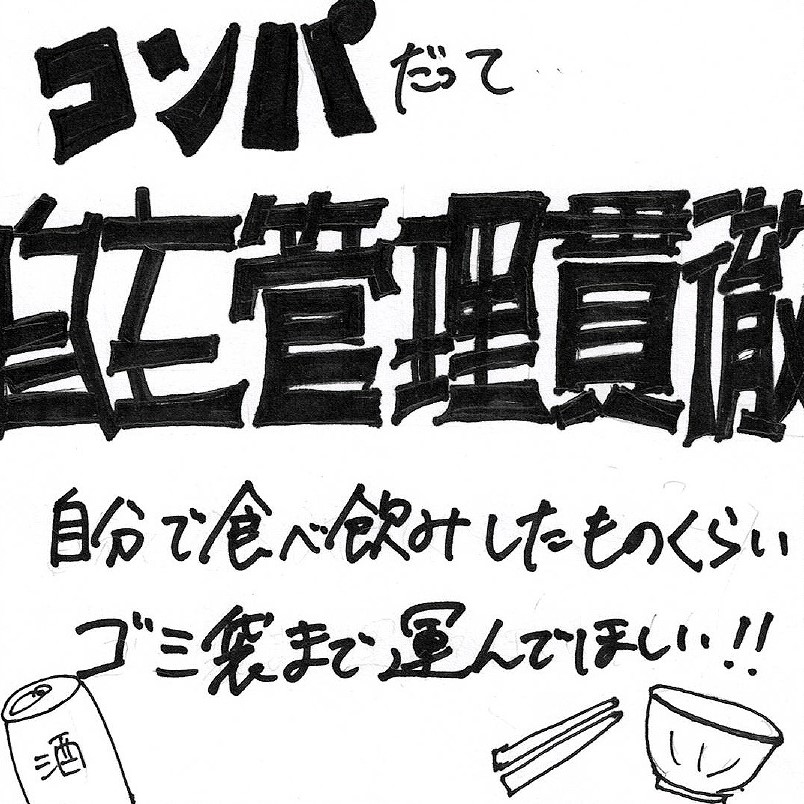 コンパだって
自主管理貫徹
自分で食べ飲みしたものくらい
ゴミ袋まで運んでほしい!!
酒